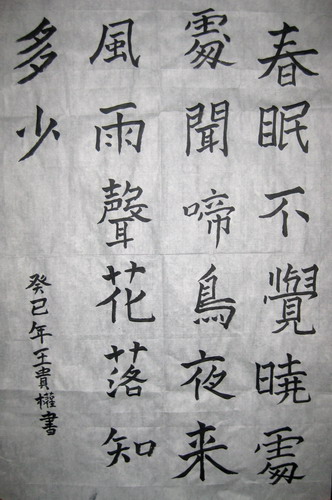 春眠不覺曉處
處聞啼鳥夜来
風雨聲花落知
多少
癸巳年王貴權書